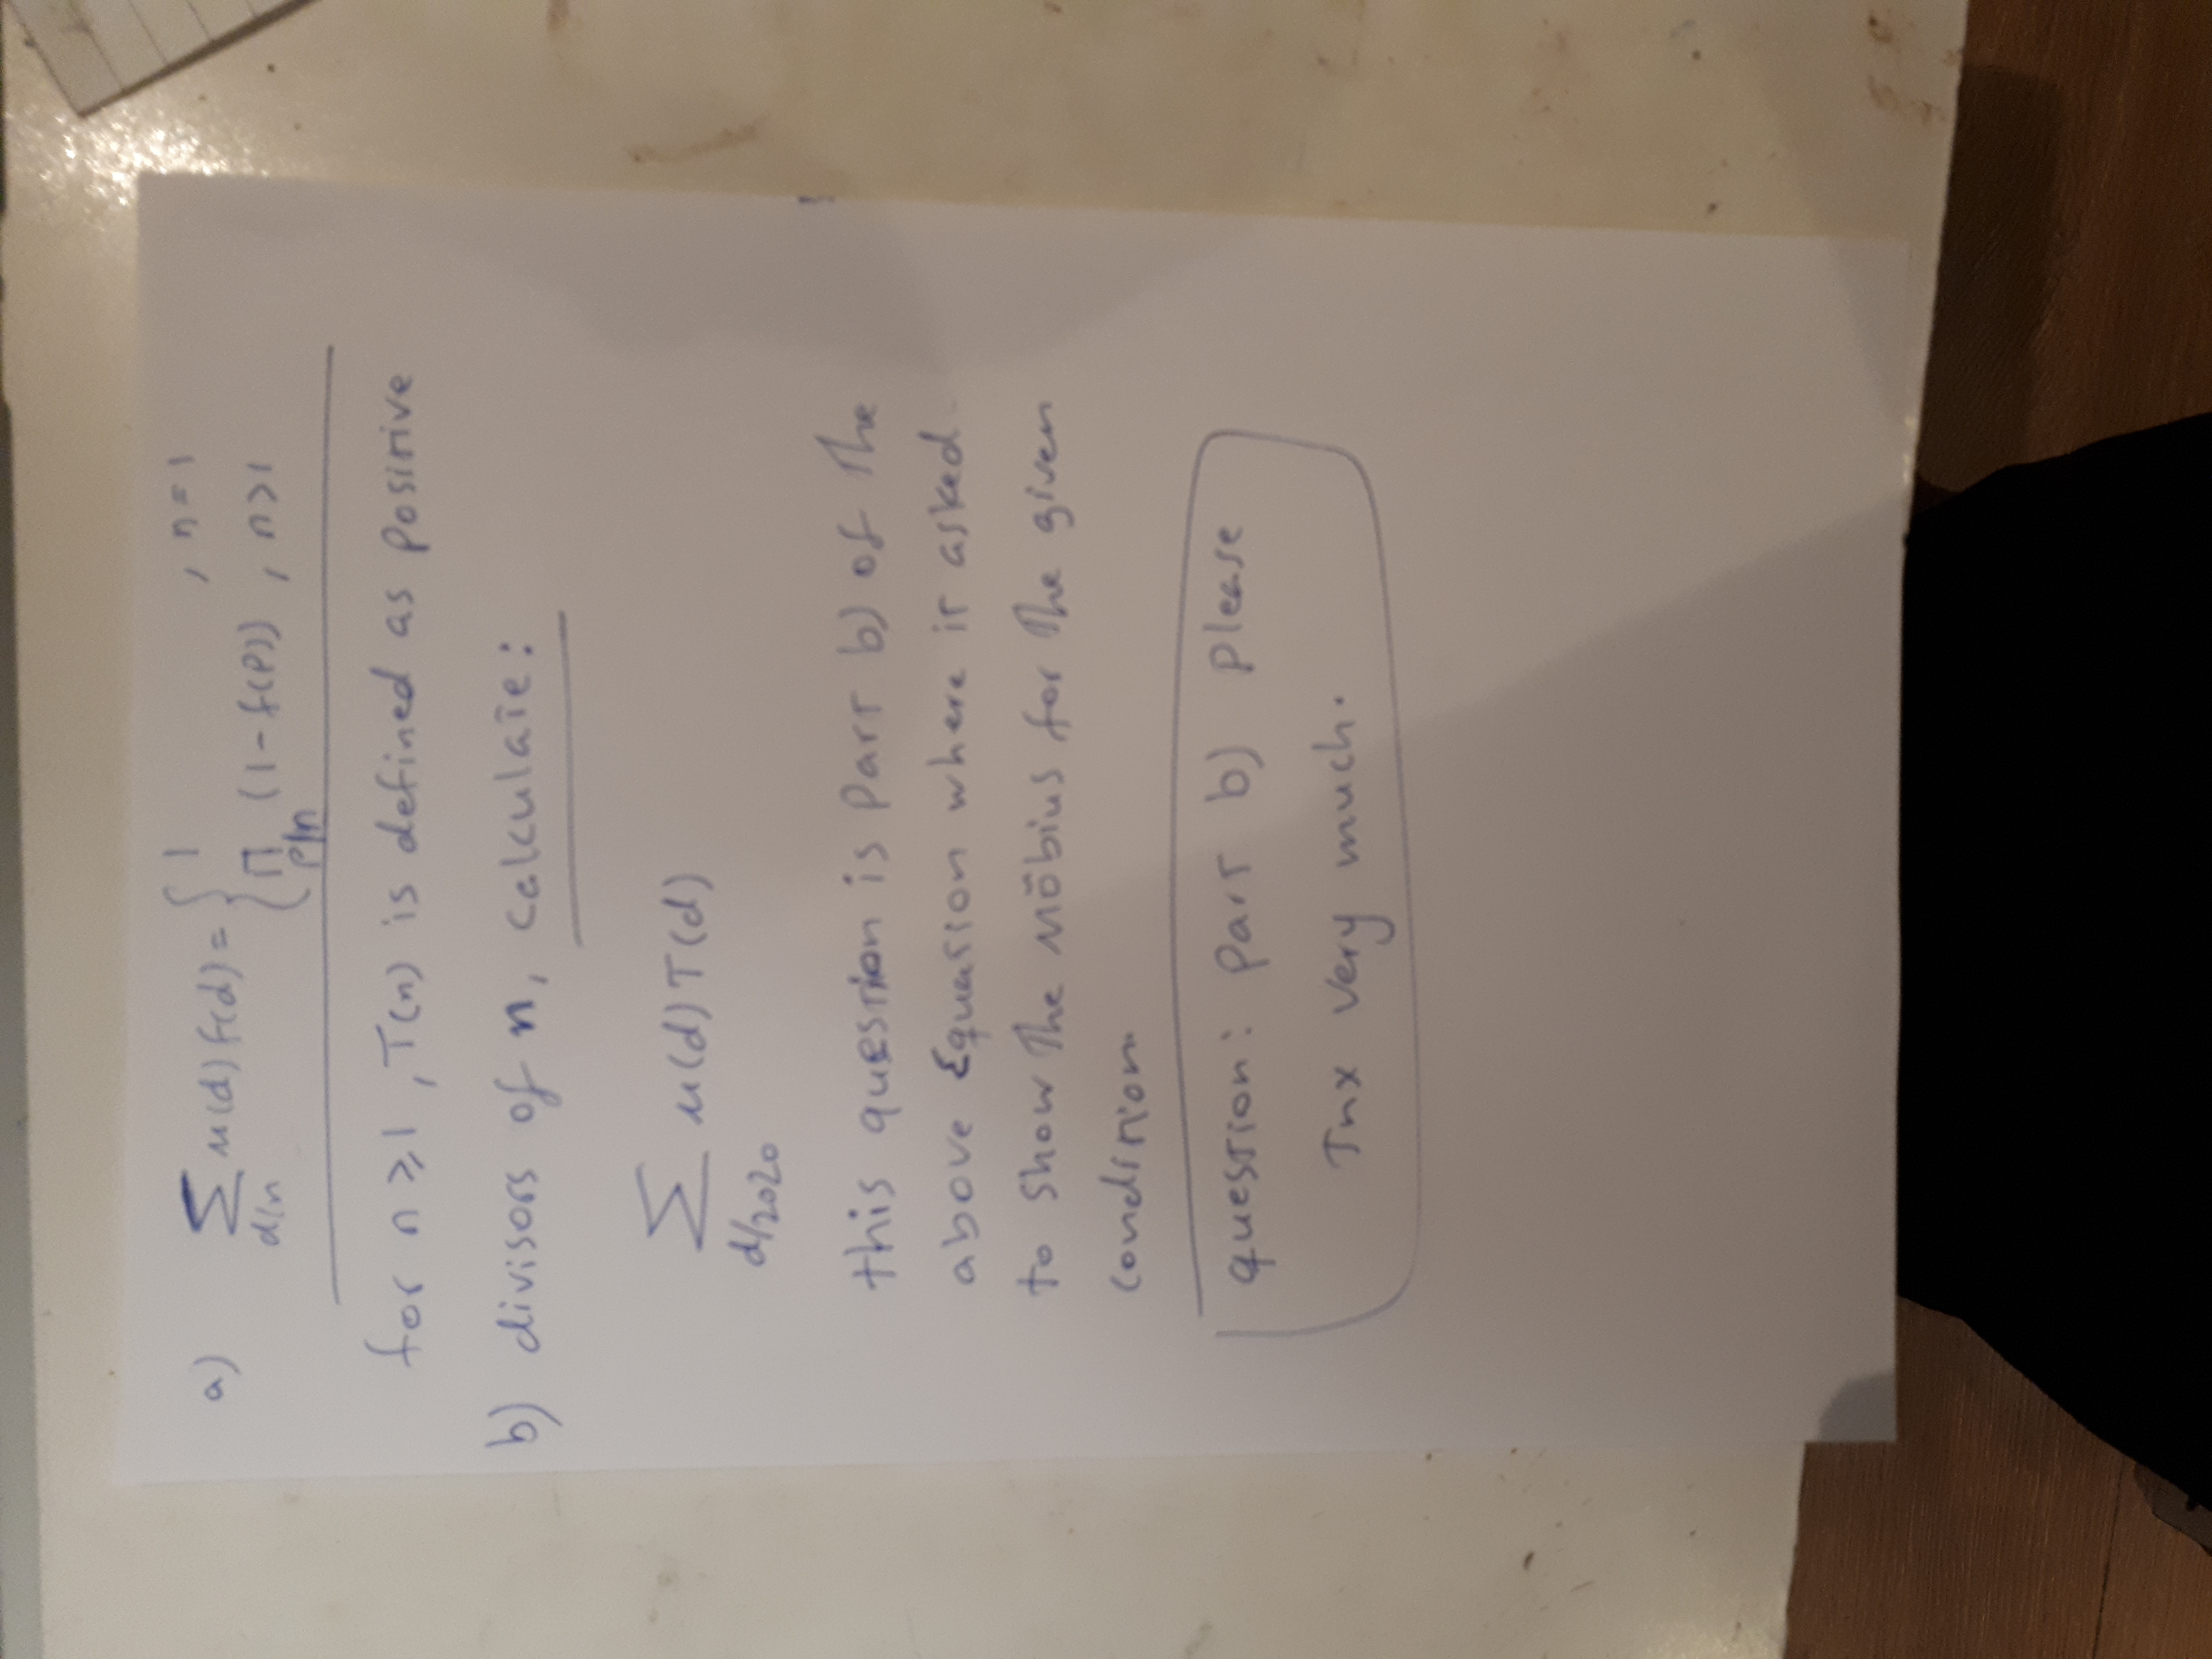 a) ∑ μ(d)f(d) = { 1 , n=1
d|n { ∏ (1-f(p)) , n>1
p|n
for n ⩾ 1, T(n) is defined as positive
b) divisors of n, calculate:
∑ μ(d)T(d)
d/2020
this question is part b) of the
above Equasion where it asked
to show the Möbius for the given
condition
question: part b) please
Tnx very much.